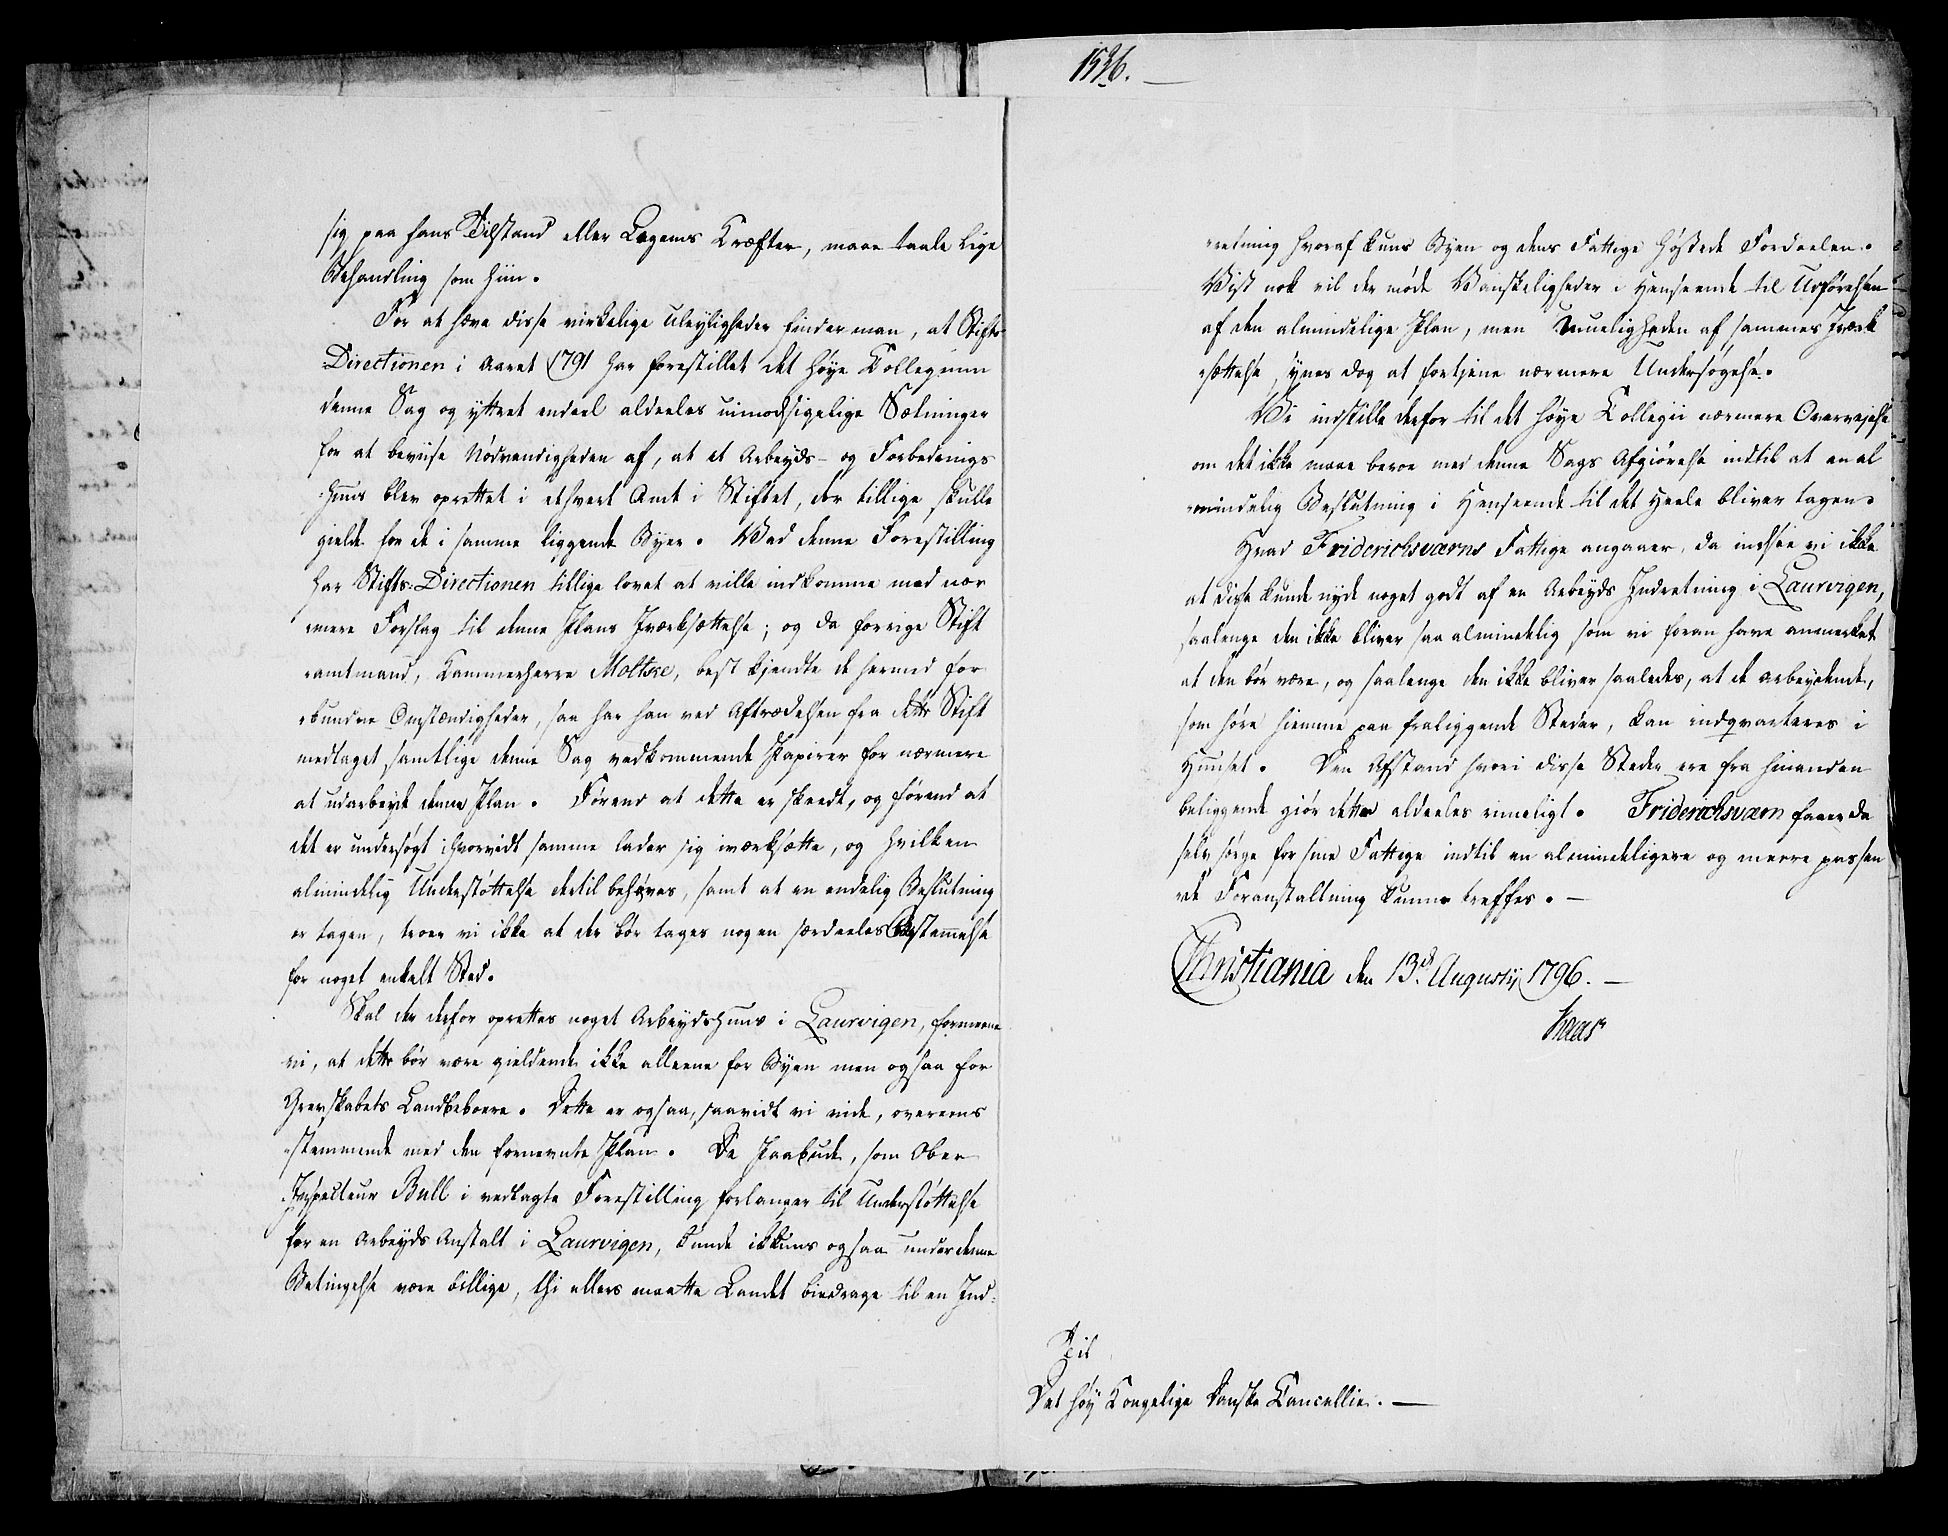 1536.
sig paa hans Tilstand eller Legems Kræfter, maae taale lige
Behandling som hiin.
For at hæve disse virkelige Uleyligheder finder man, at Stifts
Directionen i Aaret 1791 har forestillet det høye Collegium
denne Sag og yttret endeel aldeeles uimodsigelige Sætninger
for at beviise Nødvendigheden af, at et Arbeyds- og Forbedrings
-Huus blev oprettet i ethvert Amt i Stiftet, der tillige skulle
gielde for de i samme liggende Byer. Med denne Forestilling
har Stifts-Directionen tillige lovet at ville indkomme med nær
mere Forslag til denne Plans Iværksættelse; og da forrige Stift
-amtmand, Kammerherre Moltke, best kjendte de hermed for
-bundne Omstændigheder, saa har han ved Aftrædelsen fra dette Stift
medtaget samtlige denne Sag vedkommende Papirer for nærmere
at udarbeyde denne Plan. Førend at dette er skeedt, og førend at
det er undersøgt, hvorvidt samme lader sig iværksætte, og hvilken
almindelig Understøttelse dertil behøves, samt at en endelig Beslutning
er tagen, troer vi ikke at der bør tages nogen særdeeles Bestemmelse
for noget enkelt Sted.
Skal der derfor oprettes noget Arbeydshuus i Laurvigen, formeene
vi, at dette bør være gieldende ikke alleene for Byen men ogsaa for
Grevskabets Landbeboere. Dette er ogsaa, saavidt vi vide, overeens
-stemmende med den fornevnte Plan. De Paabude, som Ober
-Inspecteur Bull i vedlagte Forestilling forlanger til Understøttelse
for en Arbeyds Anstalt i Laurvigen, kunde ikkuns ogsaa under denne
Betingelse være billige, thi ellers maatte Landet biedrage til en Ind-
-retning hvoraf kuns Byen og dens Fattige høstede Fordeelen.
Vist nok vil der møde Vanskeligheder i Henseende til Udførelsen
af den almindelige Plan, men Mueligheden af sammes Iværk
-sættelse, synes dog at fortjene nærmere Undersøgelse.
Vi indstille derfor til det høye Collegii nærmere Overvejelse
om det ikke maae beroe med denne Sags Afgiørelse indtil at en al
-mindelig Beslutning i Henseende til det Heele bliver tagen.
Hvad Friderichsværns Fattige angaaer, da indsee vi ikke
at disse kunde nyde noget godt af en Arbeyds Indretning i Laurvigen,
saalenge den ikke bliver saa almindelig som vi foran have anmerket
at den bør være, og saalenge den ikke bliver saaledes, at de arbeydende,
som høre hiemme paa fraliggende Steder, kan indqvarteres i
Huuset. Den Afstand hvori disse Steder ere fra hinanden
beliggende giør dette aldeeles rimeligt. Friderichsværn faaer da
selv sørge for sine Fattige indtil en almindeligere og meere passen
de Foranstaltning kunne treffes. —
Christiania den 13d Augustij 1796. —
Kaas
Til
Det høy Kongelige Danske Cancellie. —